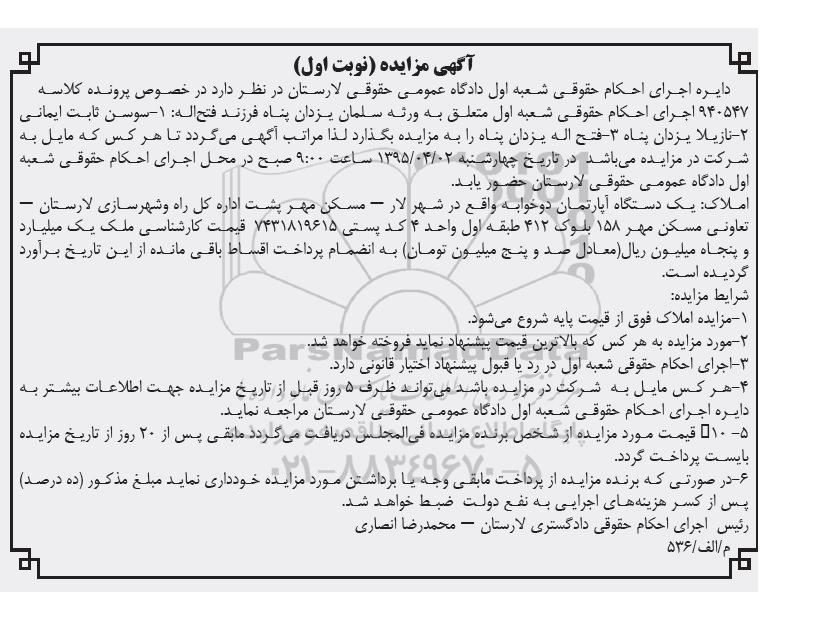 آگهی مزایده (نوبت اول)
دایره اجرای احکام حقوقی شعبه اول دادگاه عمومی حقوقی لارستان در نظر دارد در خصوص پرونده کلاسه
۹۴۰۵۴۷ اجرای احکام حقوقی شعبه اول متعلق به ورثه سلمان یزدان پناه فرزند فتح‌اله: ۱-سوسن ثابت ایمانی
۲-نازیلا یزدان پناه ۳-فتح اله یزدان پناه را به مزایده بگذارد لذا مراتب آگهی می‌گردد تا هر کس که مایل به
شرکت در مزایده می‌باشد در تاریخ چهارشنبه ۱۳۹۵/۰۴/۰۲ ساعت ۹:۰۰ صبح در محل اجرای احکام حقوقی شعبه
اول دادگاه عمومی حقوقی لارستان حضور یابد.
املاک: یک دستگاه آپارتمان دوخوابه واقع در شهر لار – مسکن مهر پشت اداره کل راه وشهرسازی لارستان –
تعاونی مسکن مهر ۱۵۸ بلوک ۴۱۲ طبقه اول واحد ۴ کد پستی ۷۴۳۱۸۱۹۶۱۵ قیمت کارشناسی ملک یک میلیارد
و پنجاه میلیون ریال(معادل صد و پنج میلیون تومان) به انضمام پرداخت اقساط باقی مانده از این تاریخ برآورد
گردیده است.
شرایط مزایده:
۱-مزایده املاک فوق از قیمت پایه شروع می‌شود.
۲-مورد مزایده به هر کس که بالاترین قیمت پیشنهاد نماید فروخته خواهد شد.
۳-اجرای احکام حقوقی شعبه اول در رد یا قبول پیشنهاد اختیار قانونی دارد.
۴-هر کس مایل به شرکت در مزایده باشد می‌تواند ظرف ۵ روز قبل از تاریخ مزایده جهت اطلاعات بیشتر به
دایره اجرای احکام حقوقی شعبه اول دادگاه عمومی حقوقی لارستان مراجعه نماید.
۵- ۱۰▯ قیمت مورد مزایده از شخص برنده مزایده فی‌المجلس دریافت می‌گردد مابقی پس از ۲۰ روز از تاریخ مزایده
بایست پرداخت گردد.
۶-در صورتی که برنده مزایده از پرداخت مابقی وجه یا برداشتن مورد مزایده خودداری نماید مبلغ مذکور (ده درصد)
پس از کسر هزینه‌های اجرایی به نفع دولت ضبط خواهد شد.
رئیس اجرای احکام حقوقی دادگستری لارستان – محمدرضا انصاری
م/الف/۵۳۶
ParsNamadData
۰۲۱-۸۸۳۴۹۶۷۰-۵